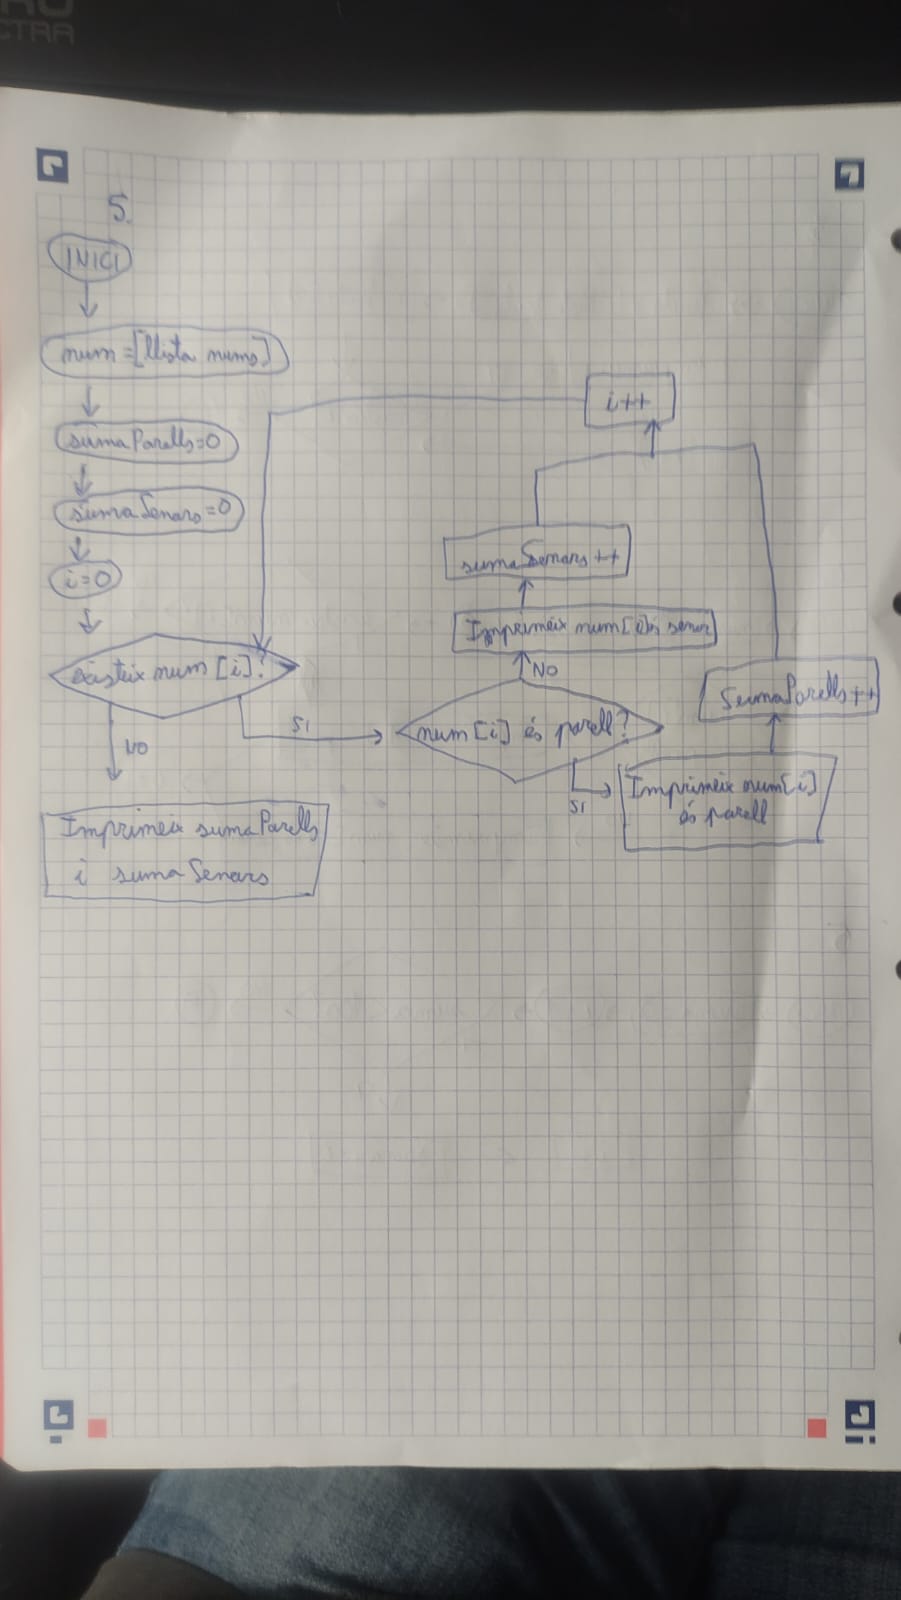 CTRA
5.
INICI
num=[llista nums]
sumaParells=0
sumaSenars=0
i=0
existeix num[i]?
NO
SI
Imprimeix sumaParells
i sumaSenars
num[i] és parell?
NO
Imprimeix num[i] és senar
sumaSenars++
SI
Imprimeix num[i]
és parell
SumaParells++
i++